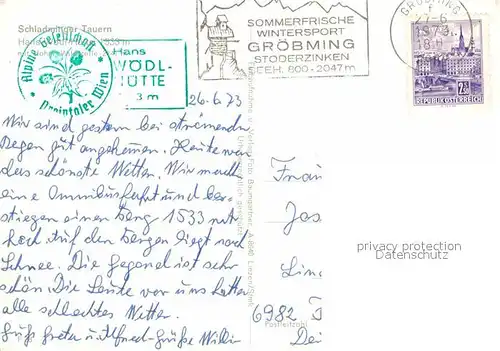 Schladminger Tauern
Hans
WÖDL-
HÜTTE
3 m
Alpine Gesellschaft
Preintaler Wien
SOMMERFRISCHE
WINTERSPORT
GRÖBMING
STODERZINKEN
SEEH. 800-2047 m
GRÖBMING
27-6
1973
18 h
2S
REPUBLIK ÖSTERREICH
26.6.73
Wir sind gestern bei strömendem
Regen gut angekommen. Heute war
das schönste Wetter. Wir machten
eine Omnibusfahrt und be-
stiegen einen Berg 1533 mtr
hoch. Auf den Bergen liegt noch
Schnee. Die Gegend ist sehr
schön. Die Leute vor uns hatten
alle schlechtes Wetter.
Grüße Willi
Frau
Jos
privacy protection
Datenschutz
Lin
6982
Postleitzahl